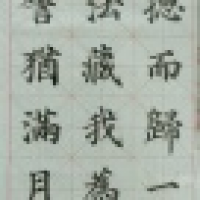 德而歸一
法藏我為
譬猶滿月